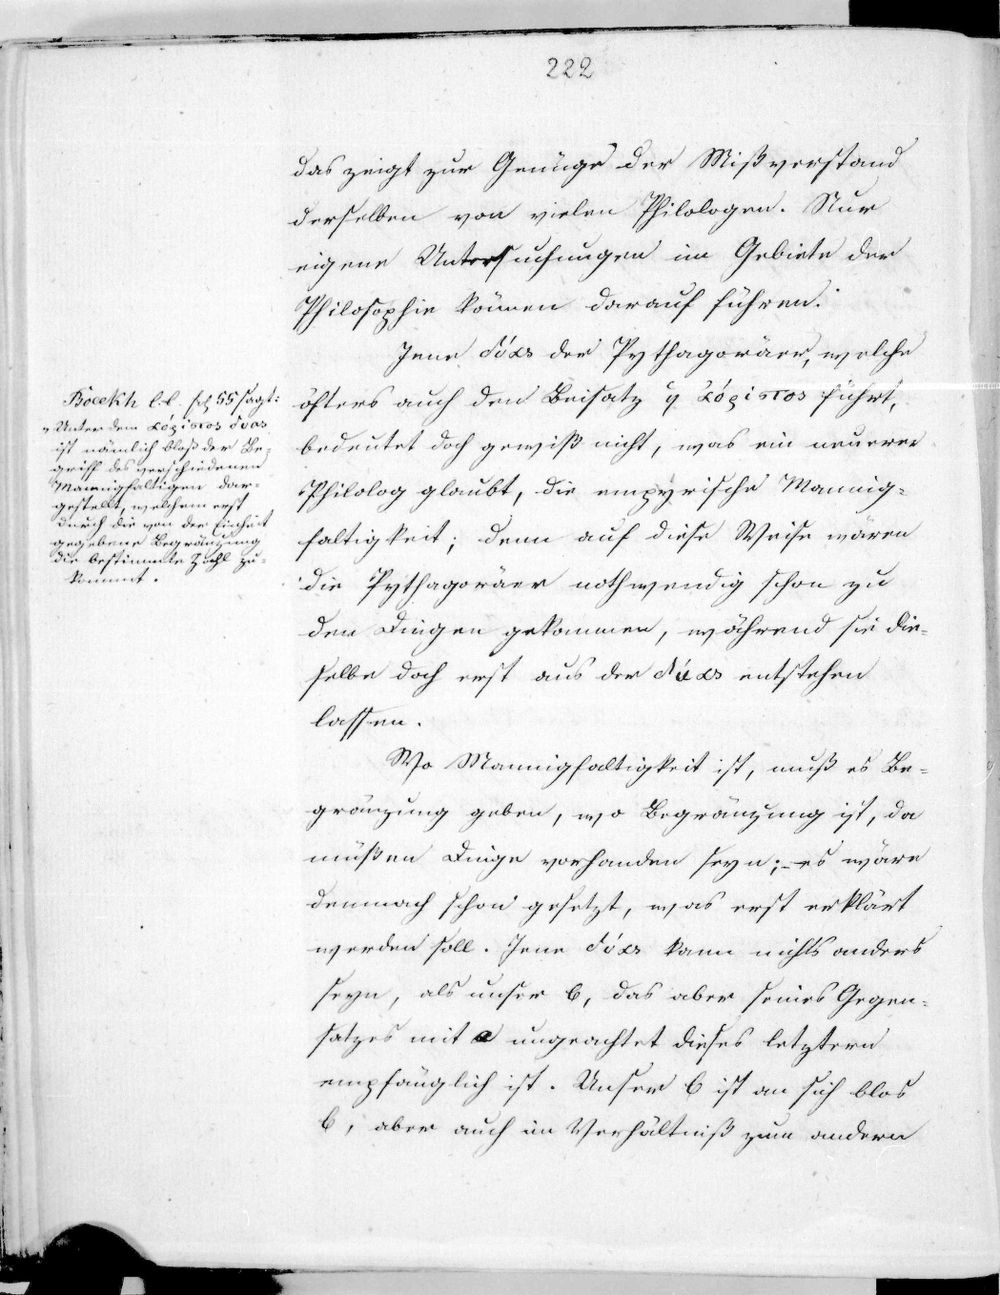 222
das zeigt zur Genüge der Mißverstand
derselben von vielen Philologen. Nur
eigene Untersuchungen im Gebiete der
Philosophie können darauf führen.
Jene δύας der Pythagoräer, welche
öfters auch den Beisatz ἀόριστος führt,
bedeutet doch gewiß nicht, was ein neuerer
Philolog glaubt, die empyrische Mannig-
faltigkeit; denn auf diese Weise wären
die Pythagoräer nothwendig schon zu
den Dingen gekommen, während sie die-
selbe doch erst aus der δύας entstehen
lassen.
Wo Mannigfaltigkeit ist, muß es Be-
gränzung geben, wo Begränzung ist, da
müßen Dinge vorhanden seyn; – es wäre
demnach schon gesetzt, was erst erklärt
werden soll. Jene δύας kann nichts anders
seyn, als unser b, das aber seines Gegen-
satzes mit a ungeachtet dieses letztern
empfänglich ist. Unser b ist an sich blos
b, aber auch im Verhältniß zum andern
Boeckh l.l. 55 sagt:
„Unter dem ἀόριστος δυας
ist nämlich bloß der Be-
griff des verschiedenen
Mannigfaltigen dar-
gestellt, welchem erst
durch die von der Einheit
gegebene Begränzung
die bestimmte Zahl zu-
kommt.